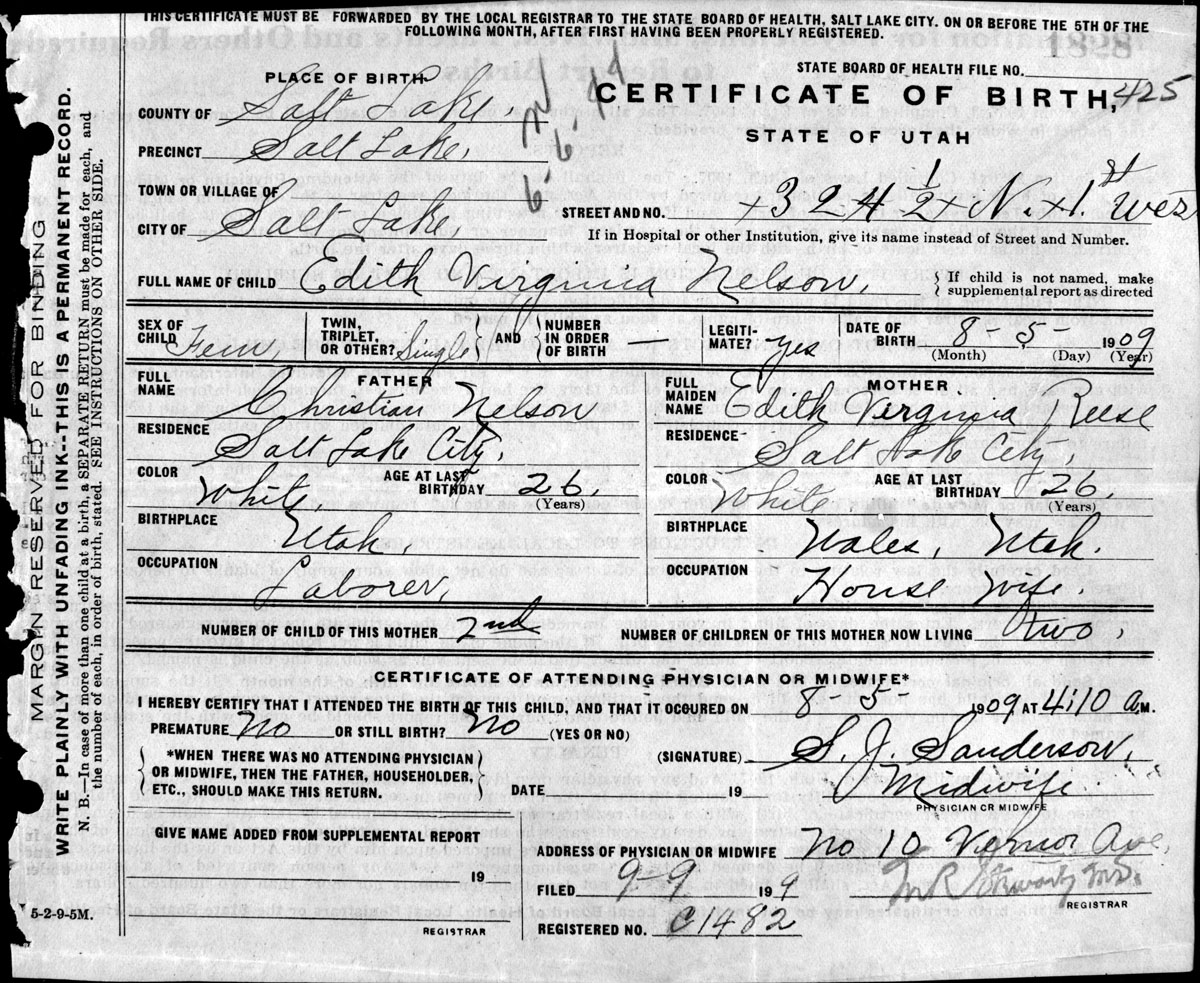 THIS CERTIFICATE MUST BE FORWARDED BY THE LOCAL REGISTRAR TO THE STATE BOARD OF HEALTH, SALT LAKE CITY. ON OR BEFORE THE 5TH OF THE
FOLLOWING MONTH, AFTER FIRST HAVING BEEN PROPERLY REGISTERED.
STATE BOARD OF HEALTH FILE NO.
PLACE OF BIRTH
CERTIFICATE OF BIRTH, 425
COUNTY OF Salt Lake
STATE OF UTAH
PRECINCT Salt Lake,
TOWN OR VILLAGE OF
CITY OF Salt Lake
STREET AND NO. x 324 1/2 x N. x 1. st West
If in Hospital or other Institution, give its name instead of Street and Number.
FULL NAME OF CHILD Edith Virginia Nelson, { If child is not named, make
supplemental report as directed
SEX OF CHILD Fem, TWIN, TRIPLET, OR OTHER? Single } AND { NUMBER IN ORDER OF BIRTH — LEGITI-MATE? yes DATE OF BIRTH 8 - 5 - 1909
(Month) (Day) (Year)
FATHER
FULL NAME Christian Nelson
RESIDENCE Salt Lake City,
COLOR White, AGE AT LAST BIRTHDAY 26.
(Years)
BIRTHPLACE Utah,
OCCUPATION Laborer,
MOTHER
FULL MAIDEN NAME Edith Virginia Reese
RESIDENCE Salt Lake City,
COLOR White AGE AT LAST BIRTHDAY 26.
(Years)
BIRTHPLACE Wales, Utah.
OCCUPATION House Wife.
NUMBER OF CHILD OF THIS MOTHER 2nd NUMBER OF CHILDREN OF THIS MOTHER NOW LIVING two,
CERTIFICATE OF ATTENDING PHYSICIAN OR MIDWIFE*
I HEREBY CERTIFY THAT I ATTENDED THE BIRTH OF THIS CHILD, AND THAT IT OCOURED ON 8 - 5 - 1909 AT 4:10 A.M.
PREMATURE No OR STILL BIRTH? No (YES OR NO)
*WHEN THERE WAS NO ATTENDING PHYSICIAN
OR MIDWIFE, THEN THE FATHER, HOUSEHOLDER,
ETC., SHOULD MAKE THIS RETURN.
(SIGNATURE) S. J. Sanderson,
DATE 19 Midwife.
PHYSICIAN OR MIDWIFE
GIVE NAME ADDED FROM SUPPLEMENTAL REPORT
19
REGISTRAR
5-2-9-5M.
ADDRESS OF PHYSICIAN OR MIDWIFE No 10 Vernor Ave,
FILED 9-9 199
REGISTRAR
REGISTERED NO. C1482
MARGIN RESERVED FOR BINDING
WRITE PLAINLY WITH UNFADING INK--THIS IS A PERMANENT RECORD.
N. B.—In case of more than one child at a birth, a SEPARATE RETURN must be made for each, and
the number of each, in order of birth, stated. SEE INSTRUCTIONS ON OTHER SIDE.